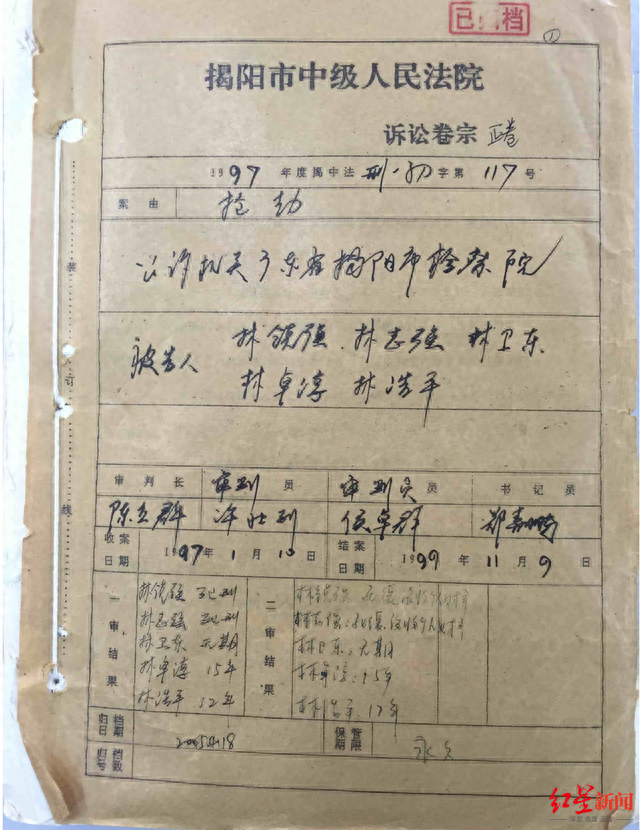 已归档
①
揭阳市中级人民法院
诉讼卷宗 正卷
1997 年度揭中法 刑初 字第 117 号
案由 抢劫
公诉机关 广东省揭阳市检察院
被告人 林锐强、林志强 林卫东
林卓淳 林浩平
装
订
线
审判长 审判员 审判员 书记员
陈立群 侯卓群
收案日期 1997年1月10日 结案日期 1999年11月9日
一审结果
林锐强 死刑
林志强 死刑
林卫东 无期
林卓淳 15年
林浩平 12年
二审结果
林锐强 死缓
林志强：死缓
林卫东：无期
林卓淳：15年
林浩平：12年
归档日期 2005.4.18 保管期限 永久
归档号数
红星新闻
深度 态度 温度